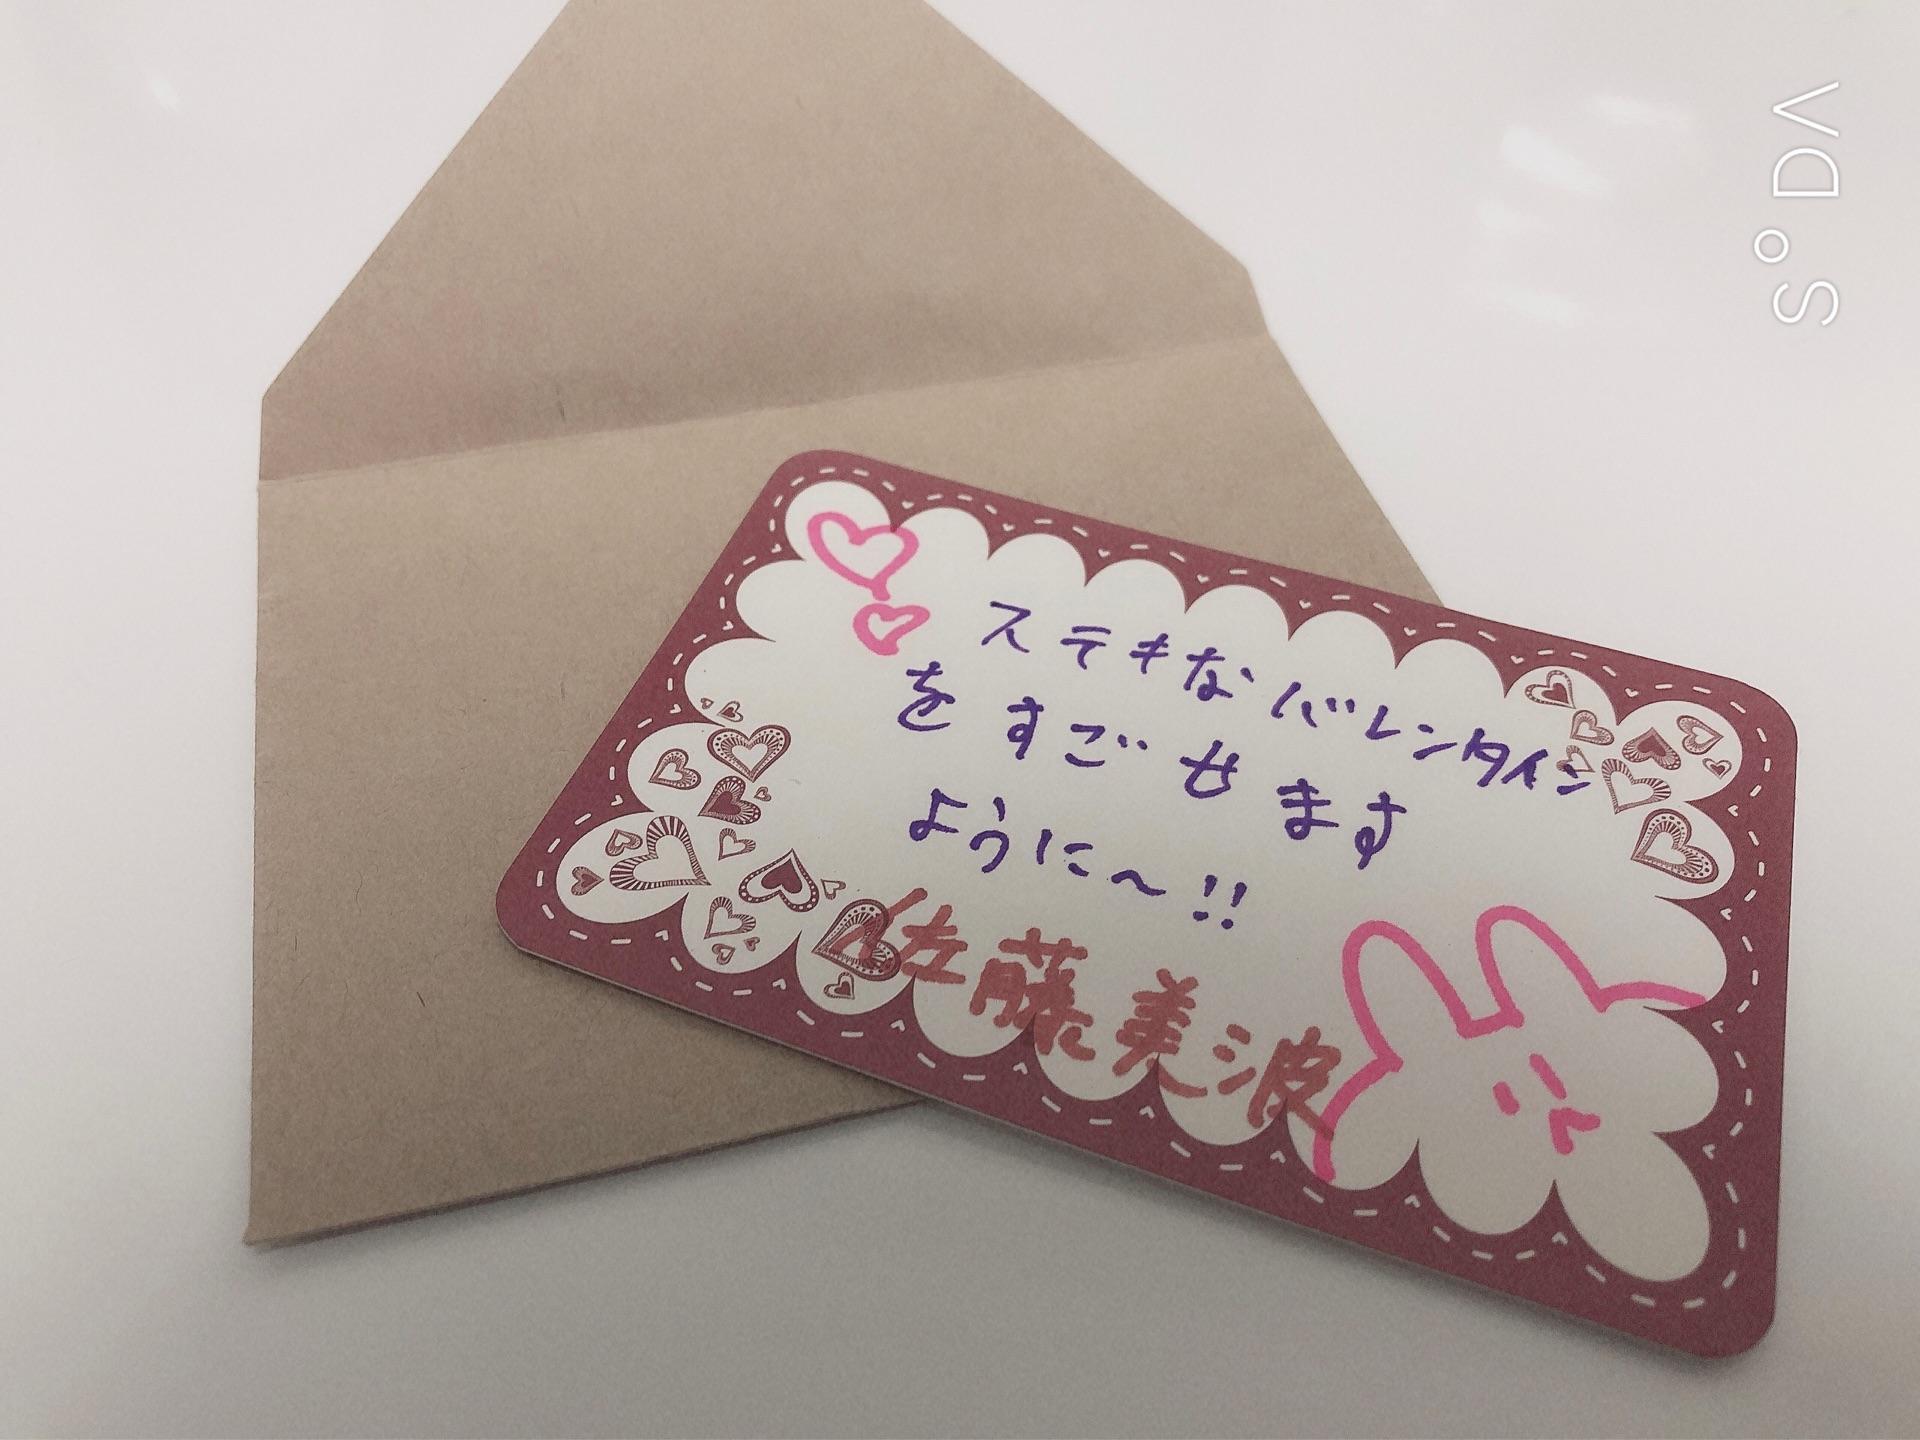 ステキなバレンタイン
をすごせます
ように〜!!
佐藤美波
SODA